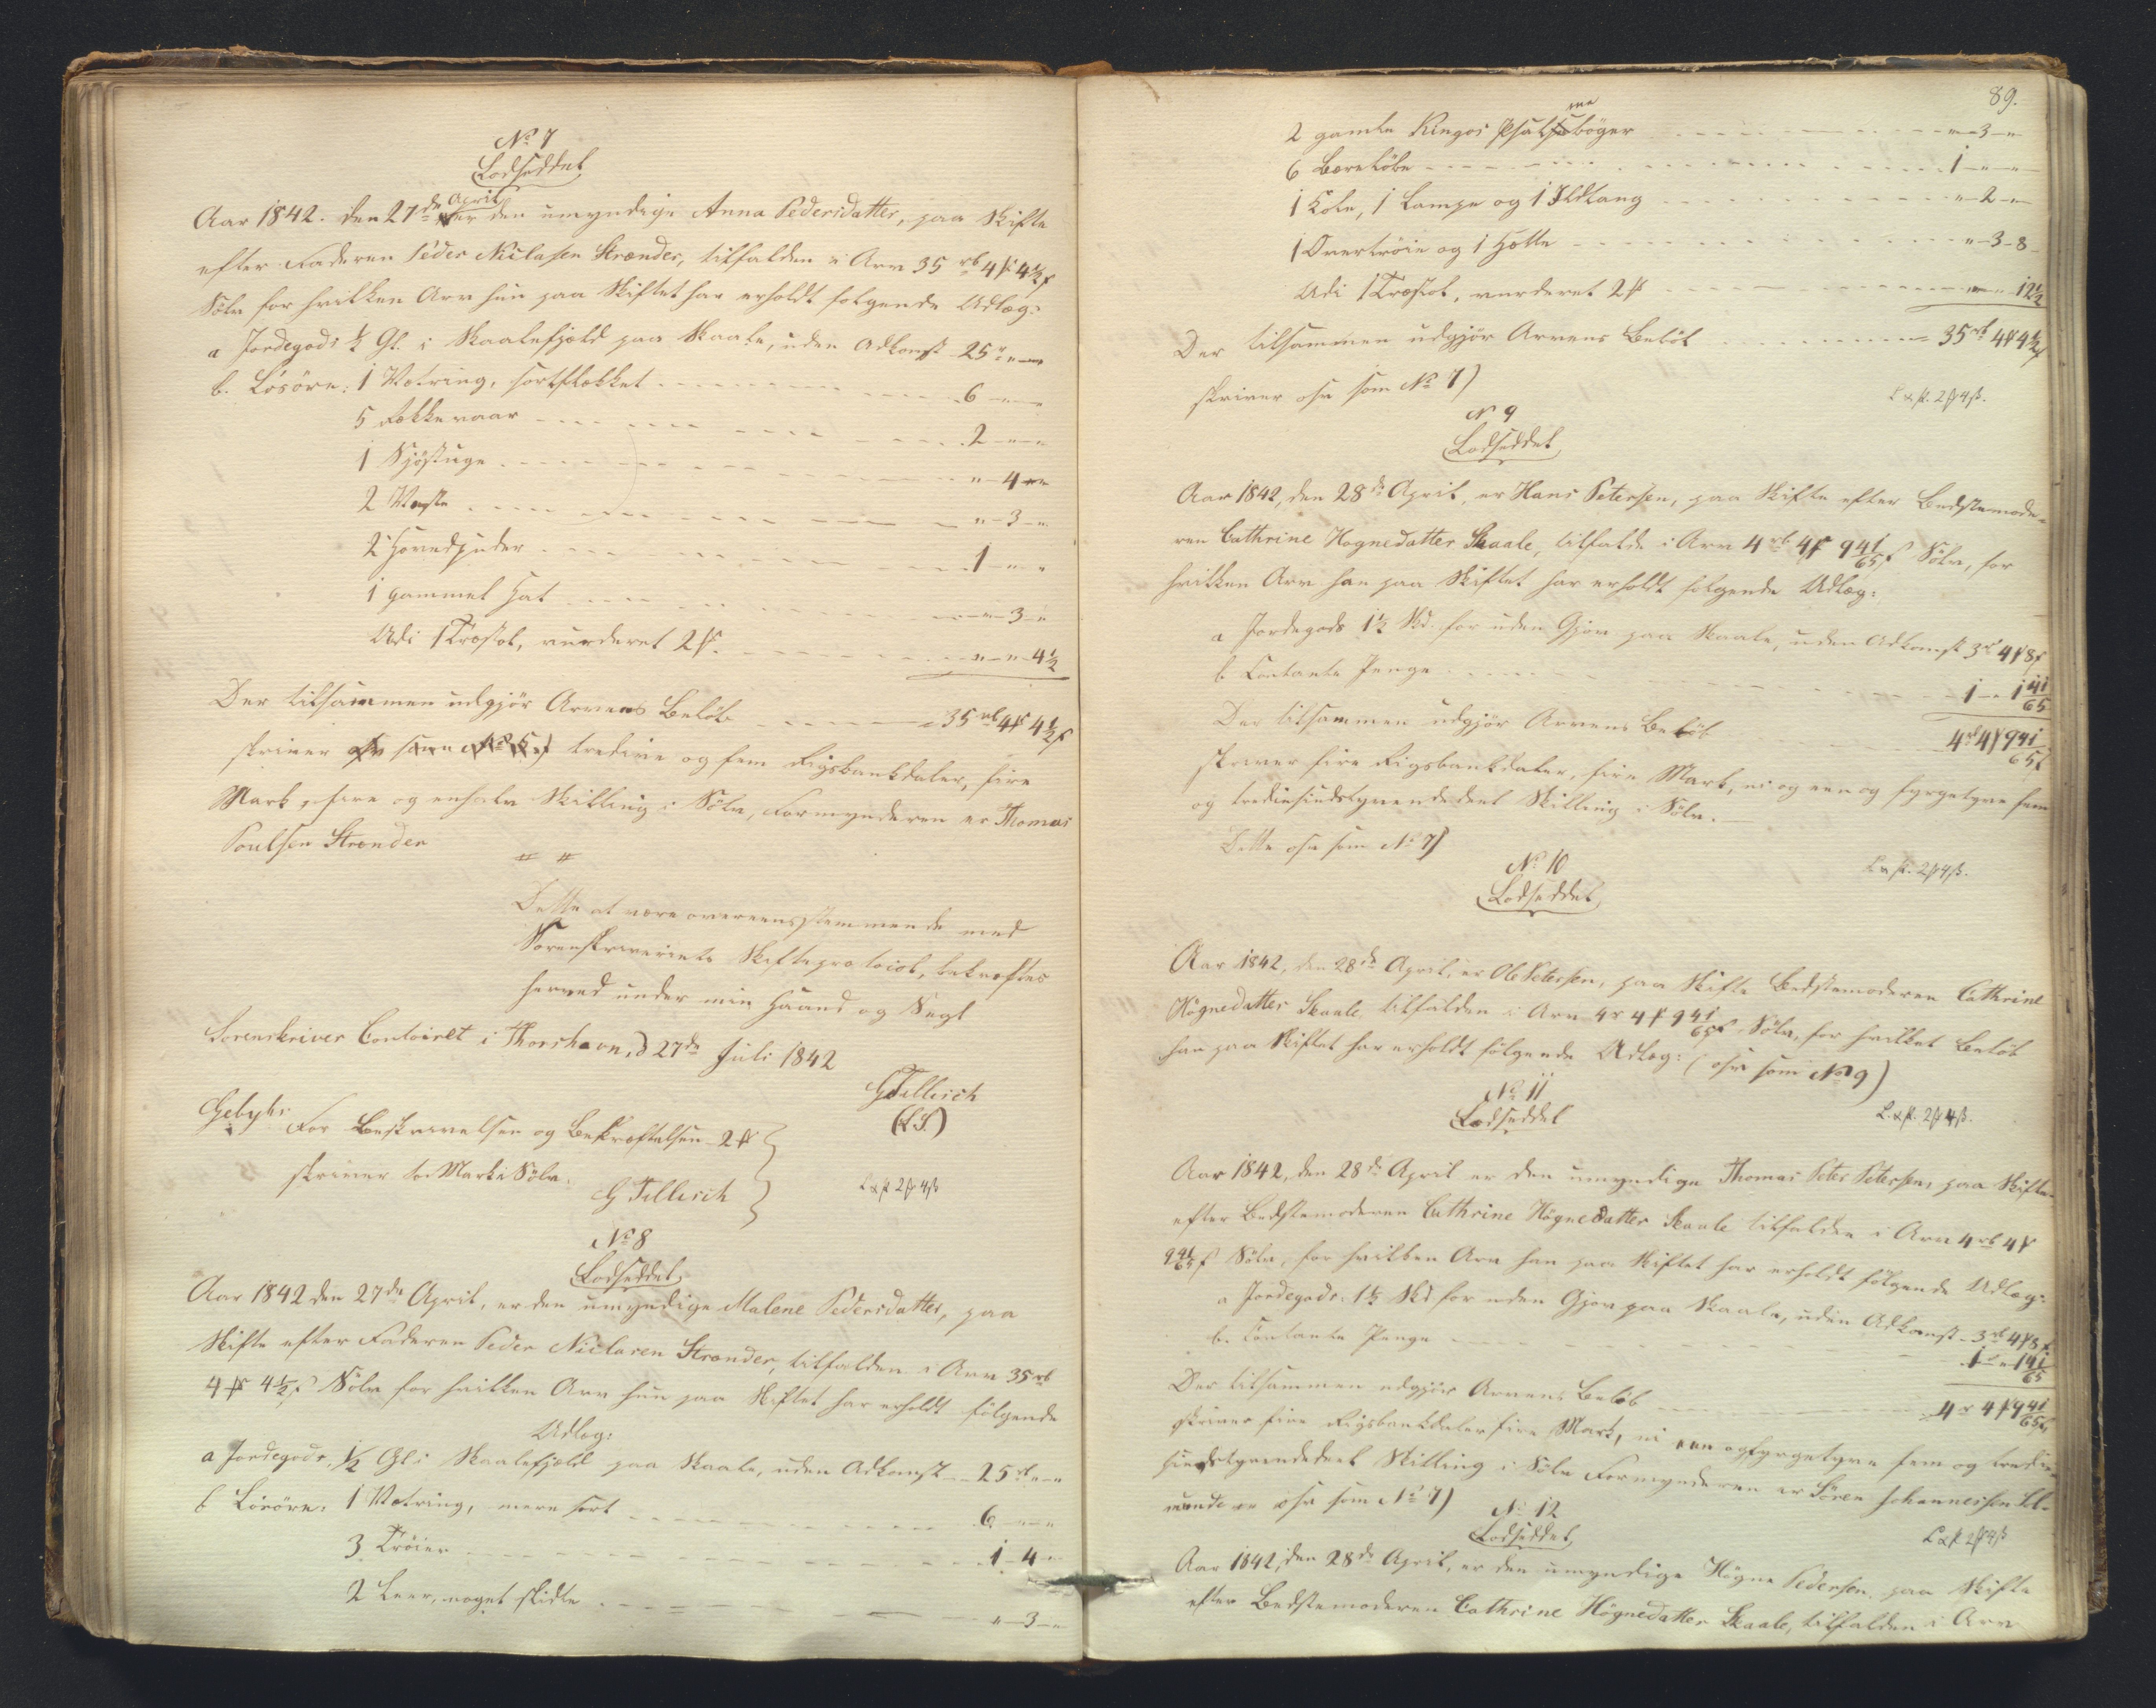 No 7
Lodseddel
Aar 1842. den 27de April er den umyndige Anna Pedersdatter, paa Skifte
efter Faderen Peder Niclasen Strænder, tilfalden i Arv 35 rb 4 # 4½ s
Sölv for hvilken Arv hun paa Skiftet har erholdt folgende Udlæg:
a Jordegods ½ Gl. i Skaalefjeld paa Skaale, uden Adkomst 25 " "
b. Lösöre: 1 Vetring, sortflekket 6 " "
5 Sökkevaar 2 " "
1 Sjöstuge " 4 "
2 Veste " 3 "
2 Hovedpuder 1 " "
1 gammel Hat " 3 "
Udi 1 Træstol, vurderet 2 #. " " 4½
Der tilsammen udgjör Arvens Belöb 35 rb 4 # 4½ s
skriver osv som No 5) tredive og fem Rigsbankdaler, fire
Mark, fire og enhalv Skilling i Sölv, Formynderen er Thomas
Poulsen Strender
Dette at være overeensstemmende med
Sorenskriveriets Skifteprotocol, bekræftes
herved under min Haand og Segl
Sorenskriver Contoiret i Thorshavn, d 27de Juli 1842
G Tillisch
(LS.)
Gebyhr For Beskrivelsen og Bekræftelsen 2 #
skriver to Mark i Sölv.
G Tillisch
L & st. 2 # 4 ß
No 8
Lodseddel
Aar 1842 den 27de April, er den umyndige Malene Pedersdatter, paa
Skifte efter Faderen Peder Niclasen Strænder, tilfalden i Arv 35 rb
4 # 4½ s Sölv for hvilken Arv hun paa Skiftet har erholdt folgende
Udlæg:
a Jordegods, ½ Gl. i Skaalefjeld paa Skaale, uden Adkomst 25 rb " "
b Lösöre: 1 Vetring, mere sort 6 " "
3 Tröier 1 4 "
2 Leer, noget slidte " 3 "
89.
2 gamle Kingos Psalmeböger " 3 "
6 Bæreköbe 1 " "
1 Kole, 1 Lampe og 1 Ildtang " 2 "
1 Overtröie og 1 Hætte " 3 8
Udi 1 Træstol, vurderet 2 # " " 12½
Der tilsammen udgjör Arvens Belöb 35 rb 4 # 4½ s
skriver osv som No 7)
L & st. 2 # 4 ß.
No 9
Lodseddel
Aar 1842, den 28de April, er Hans Petersen, paa Skifte efter Bedstemode-
ren Cathrine Hognedatter Skaale, tilfalde i Arv 4 rb 4 # 9 41/65 s Sölv, for
hvilken Arv han paa Skiftet har erholdt folgende Udlæg:
a Jordegods 1½ Skd. for uden Gjov paa Skaale, uden Adkomst 3 rb 4 # 8 s
b Contante Penge 1 " 1 41/65
Der tilsammen udgjör Arvens Belöb 4 rb 4 # 9 41/65 s
skriver fire Rigsbankdaler, fire Mark, ni og een og fyrgetyve fem
og tredsindstyvendedeel Skilling i Sölv.
Dette osv som No 7)
L & st. 2 # 4 ß.
No 10
Lodseddel
Aar 1842, den 28de April, er Ole Petersen, paa Skifte Bedstemoderen Cathrine
Högnedatter Skaale, tilfalden i Arv 4 r 4 # 9 41/65 s Sölv, for hvilket Belöb
han paa Skiftet har erholdt folgende Udlæg: (osv som No 9)
L. & st. 2 # 4 ß.
No 11
Lodseddel
Aar 1842, den 28de April er den umyndige Thomas Peter Petersen, paa Skifte
efter Bedstemoderen Cathrine Högnedatter Skaale tilfalden i Arv 4 rb 4 #
9 41/65 s Sölv, for hvilken Arv han paa Skiftet har erholdt fölgende Udlæg:
a Jordegods. 1½ Skd. for uden Gjov paa Skaale, uden Adkomst 3 rb 4 # 8 s
b. Contante Penge 1 " 1 41/65
Der tilsammen udgjör Arvens Belöb 4 r 4 # 9 41/65 s
skriver fire Rigsbankdaler fire Mark, ni een og fyrgetyve fem og tred-
sindstyvendedeel Skilling i Sölv Formynderen er Sören Johannessen
osv som No 7)
L & st 2 # 4 ß
No 12
Lodseddel
Aar 1842, den 28de April, er den umyndige Högne Pedersen, paa Skifte
efter Bedstemoderen Cathrine Högnedatter Skaale, tilfalden i Arv